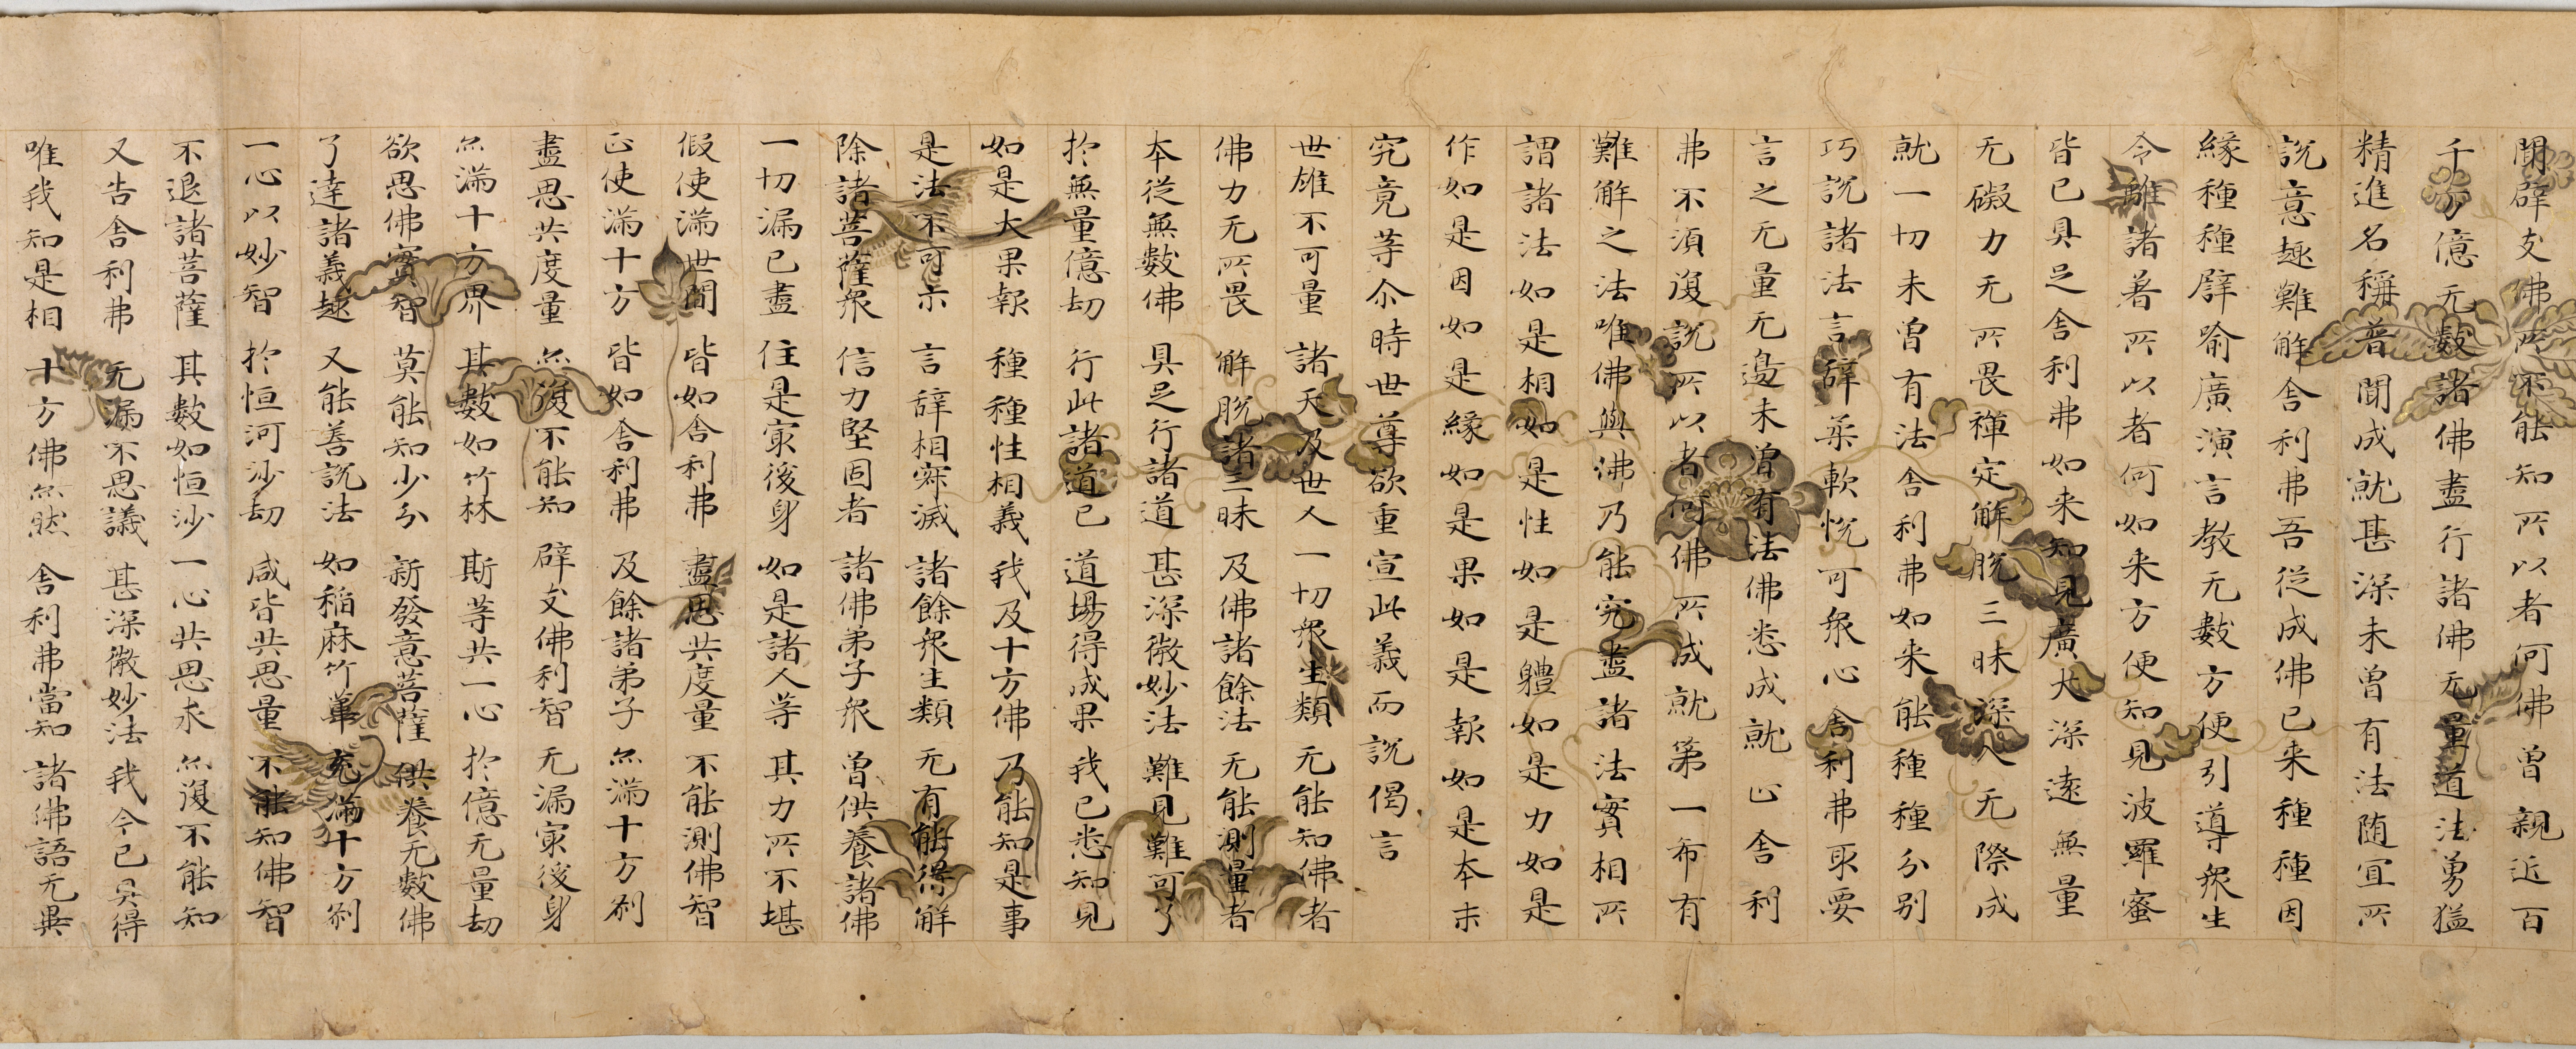 聞辟支佛所不能知所以者何佛曽親近百
千万億无數諸佛盡行諸佛无量道法勇猛
精進名稱普聞成就甚深未曽有法随冝所
說意趣難解舍利弗吾従成佛已来種種因
緣種種辟喻廣演言教无數方便引導衆生
令離諸著所以者何如来方便知見波羅蜜
皆已具足舍利弗如来知見廣大深遠無量
无礙力无所畏禪定解脫三昧深入无際成
就一切未曽有法舍利弗如来能種種分别
巧說諸法言辭柔軟恱可衆心舍利弗取要
言之无量无邊未曽有法佛悉成就止舍利
弗不湏復說所以者何佛所成就第一希有
難解之法唯佛與佛乃能究盡諸法實相所
謂諸法如是相如是性如是體如是力如是
作如是因如是緣如是果如是報如是本末
究竟等尒時世尊欲重宣此義而說偈言
世雄不可量　諸天及世人　一切衆生類　无能知佛者
佛力无所畏　解脫諸三昧　及佛諸餘法　无能測量者
本従無數佛　具足行諸道　甚深微妙法　難見難可了
扵無量億劫　行此諸道已　道場得成果　我已悉知見
如是大果報　種種性相義　我及十方佛　乃能知是事
是法不可示　言辭相寂滅　諸餘衆生類　无有能得解
除諸菩薩衆　信力堅固者　諸佛弟子衆　曽供養諸佛
一切漏已盡　住是㝡後身　如是諸人等　其力所不堪
假使滿世間　皆如舍利弗　盡思共度量　不能測佛智
正使滿十方　皆如舍利弗　及餘諸弟子　亦滿十方刹
盡思共度量　亦復不能知　辟支佛利智　无漏㝡後身
亦滿十方界　其數如竹林　斯等共一心　扵億无量劫
欲思佛實智　莫能知少分　新發意菩薩　供養无數佛
了達諸義趣　又能善說法　如稲麻竹葦　充滿十方刹
一心以妙智　扵恒河沙劫　咸皆共思量　不能知佛智
不退諸菩薩　其數如恒沙　一心共思求　亦復不能知
又告舍利弗　无漏不思議　甚深微妙法　我今已具得
唯我知是相　十方佛亦然　舍利弗當知　諸佛語无異